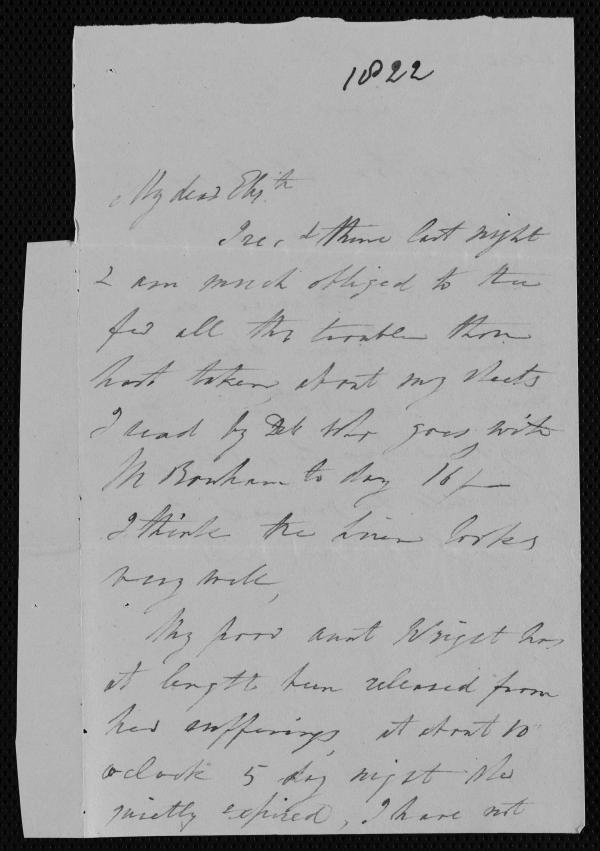 1822
My dear Eliz.th
I rec.d thine last night
& am much obliged to thee
for all the trouble thou
hast taken about my sheets
I send by Deb who goes with
M Bonham to day 16/-
I think the linen looks
very well,
My poor aunt Wright has
at length been released from
her sufferings, at about 10
oclock 5 day night she
quietly expired, I have not